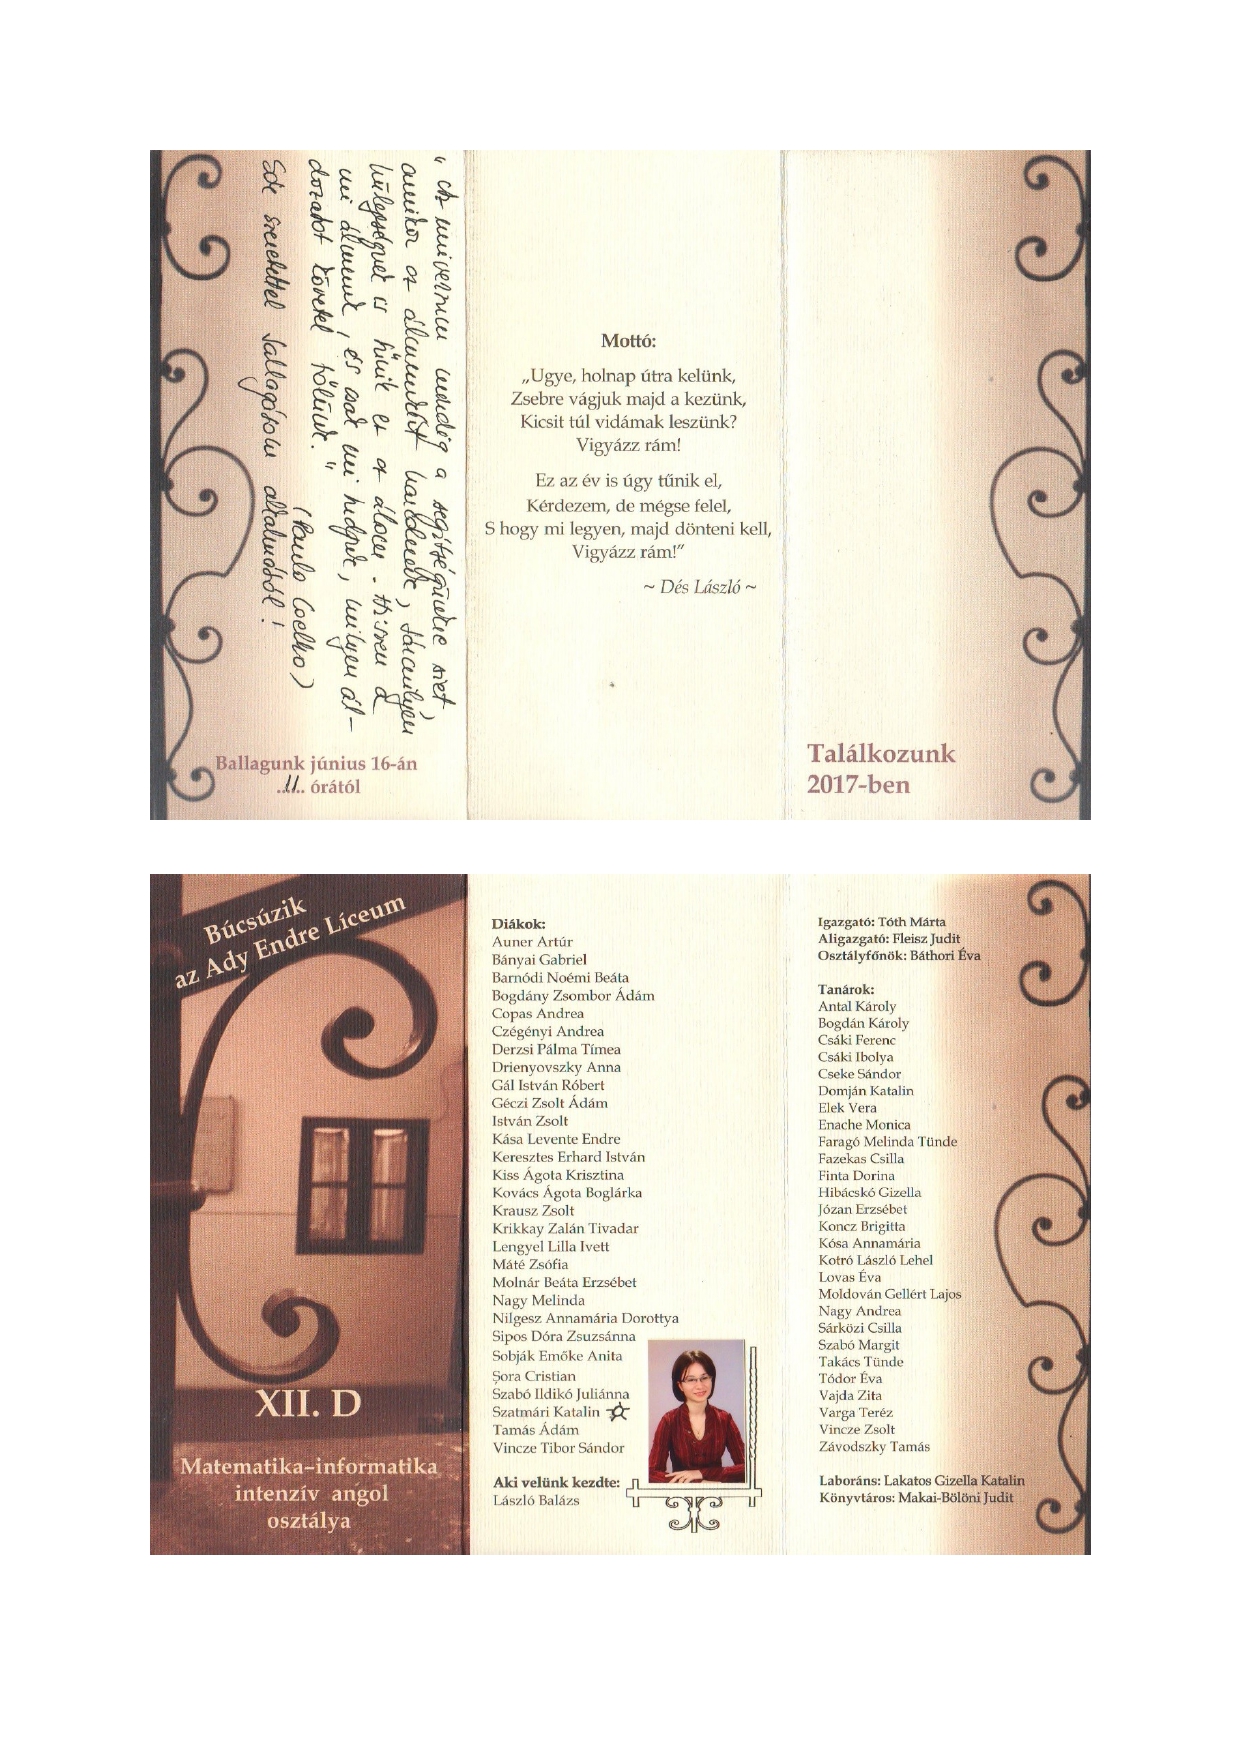 " Az univerzum mindig a segítségünkre siet,
amikor az álmunkért harcolunk, bármilyen
hülyeségnek is tűnik ez az álom - hiszen a
mi álmunk, és csak mi tudjuk, milyen ál-
dozatot követel tőlünk. "
(Paulo Coelho)
Sok szeretettel ballagásom alkalmából!
Ballagunk június 16-án
..11.. órától
Mottó:
„Ugye, holnap útra kelünk,
Zsebre vágjuk majd a kezünk,
Kicsit túl vidámak leszünk?
Vigyázz rám!
Ez az év is úgy tűnik el,
Kérdezem, de mégse felel,
S hogy mi legyen, majd dönteni kell,
Vigyázz rám!”
~ Dés László ~
Találkozunk
2017-ben
Búcsúzik
az Ady Endre Líceum
XII. D
Matematika–informatika
intenzív angol
osztálya
Diákok:
Auner Artúr
Bányai Gabriel
Barnódi Noémi Beáta
Bogdány Zsombor Ádám
Copas Andrea
Czégényi Andrea
Derzsi Pálma Tímea
Drienyovszky Anna
Gál István Róbert
Géczi Zsolt Ádám
István Zsolt
Kása Levente Endre
Keresztes Erhard István
Kiss Ágota Krisztina
Kovács Ágota Boglárka
Krausz Zsolt
Krikkay Zalán Tivadar
Lengyel Lilla Ivett
Máté Zsófia
Molnár Beáta Erzsébet
Nagy Melinda
Nilgesz Annamária Dorottya
Sipos Dóra Zsuzsánna
Sobják Emőke Anita
Șora Cristian
Szabó Ildikó Juliánna
Szatmári Katalin
Tamás Ádám
Vincze Tibor Sándor
Aki velünk kezdte:
László Balázs
Igazgató: Tóth Márta
Aligazgató: Fleisz Judit
Osztályfőnök: Báthori Éva
Tanárok:
Antal Károly
Bogdán Károly
Csáki Ferenc
Csáki Ibolya
Cseke Sándor
Domján Katalin
Elek Vera
Enache Monica
Faragó Melinda Tünde
Fazekas Csilla
Finta Dorina
Hibácskó Gizella
Józan Erzsébet
Koncz Brigitta
Kósa Annamária
Kotró László Lehel
Lovas Éva
Moldován Gellért Lajos
Nagy Andrea
Sárközi Csilla
Szabó Margit
Takács Tünde
Tódor Éva
Vajda Zita
Varga Teréz
Vincze Zsolt
Závodszky Tamás
Laboráns: Lakatos Gizella Katalin
Könyvtáros: Makai-Bölöni Judit